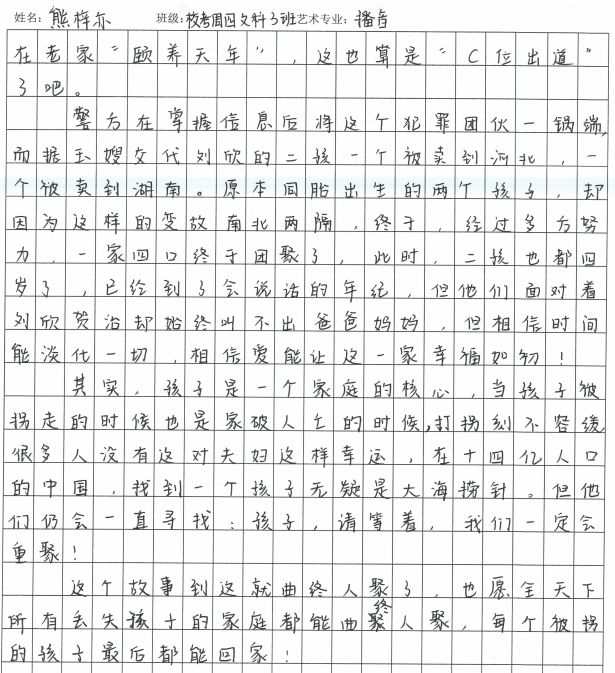 姓名：熊梓尔 班级：校考周四文科3班艺术专业：播音
在老家“颐养天年”，这也算是“C位出道”
了吧。
警方在掌握信息后将这个犯罪团伙一锅端，
而据玉嫂交代刘欣的二孩一个被卖到河北，一
个被卖到湖南。原本同胎出生的两个孩子，却
因为这样的变故南北两隔，终于，经过多方努
力，一家四口终于团聚了，此时，二孩也都四
岁了，已经到了会说话的年纪，但他们面对着
刘欣贺治却始终叫不出爸爸妈妈，但相信时间
能淡化一切，相信爱能让这一家幸福如初！
其实，孩子是一个家庭的核心，当孩子被
拐走的时候也是家破人亡的时候，打拐刻不容缓
很多人没有这对夫妇这样幸运，在十四亿人口
的中国，找到一个孩子无疑是大海捞针。但他
们仍会一直寻找：孩子，请等着，我们一定会
重聚！
这个故事到这就曲终人聚了，也愿全天下
所有丢失孩子的家庭都能曲终人聚，每个被拐
的孩子最后都能回家！